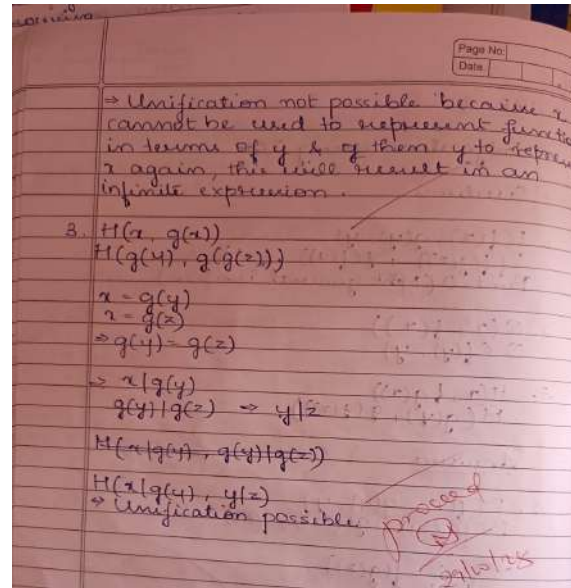 Page No:
Date
⇒ Unification not possible because x
cannot be used to represent functi
in terms of y & then y to repres
x again, this will result in an
infinite expression.
3. H(x, g(x))
H(g(y), g(g(z)))
x = g(y)
x = g(z)
⇒ g(y) = g(z)
⇒ x|g(y)
g(y)|g(z) ⇒ y|z
H(x|g(y), g(y)|g(z))
H(x|g(y), y|z)
⇒ Unification possible.
proceed